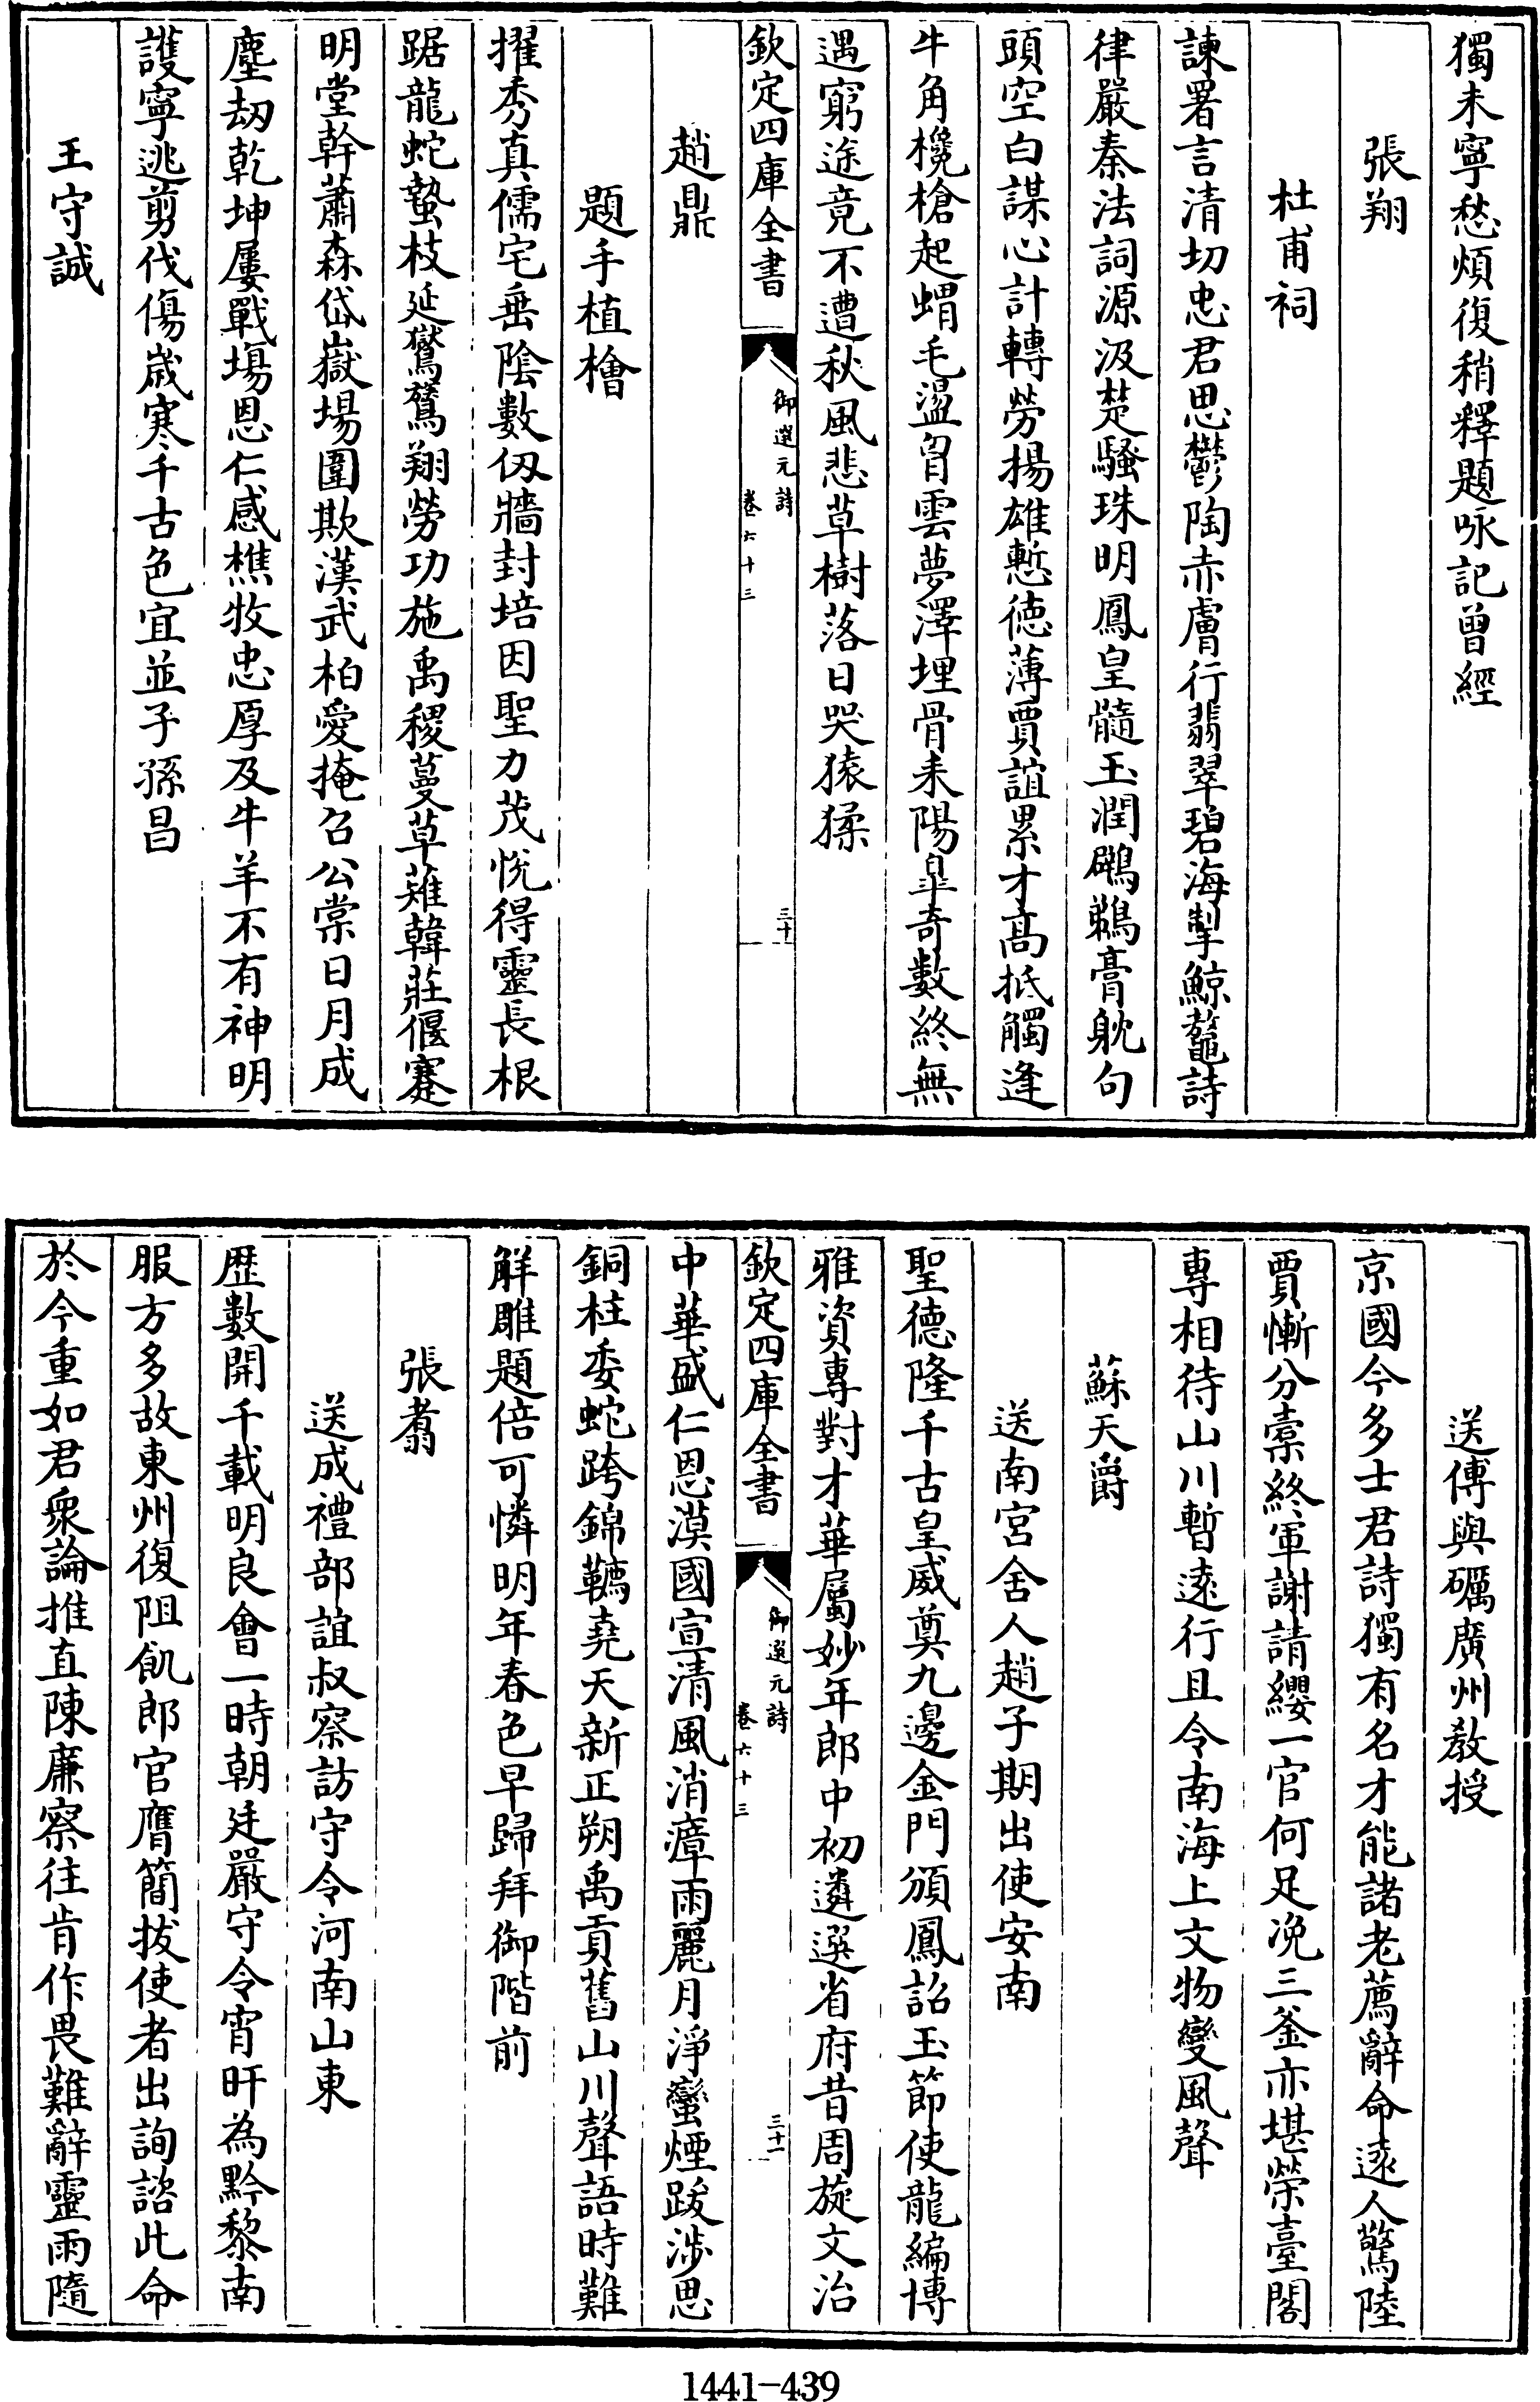 獨未寧愁煩復稍釋題咏記曾經
張翔
杜甫祠
諫署言清切忠君思鬱陶赤膚行翡翠碧海掣鯨鼇詩
律嚴秦法詞源汲楚騷珠明鳳皇髓玉潤鸊鵜膏躭句
頭空白謀心計轉勞揚雄慙徳薄賈誼累才高抵觸逢
牛角欃槍起蝟毛盪胷雲夢澤埋骨耒陽皐奇數終無
遇窮途竟不遭秋風悲草樹落日哭猿猱
欽定四庫全書
御選元詩
卷六十三
三十
趙鼎
題手植檜
擢秀真儒宅垂陰數仭牆封培因聖力茂悅得靈長根
踞龍蛇蟄枝延鸑鷟翔勞功施禹稷蔓草薙韓莊偃蹇
明堂幹蕭森岱嶽場圍欺漢武柏愛掩召公棠日月成
塵刼乾坤屢戰場恩仁感樵牧忠厚及牛羊不有神明
護寧逃剪伐傷歲寒千古色宜並子孫昌
王守誠
送傅與礪廣州教授
京國今多士君詩獨有名才能諸老薦辭命逺人驚陸
賈慚分橐終軍謝請纓一官何足凂三釜亦堪榮臺閣
專相待山川暫逺行且令南海上文物變風聲
蘇天爵
送南宮舍人趙子期出使安南
聖德隆千古皇威奠九邊金門頒鳳詔玉節使龍編博
雅資專對才華屬妙年郎中初遴選省府昔周旋文治
欽定四庫全書
御選元詩
卷六十三
三十一
中華盛仁恩漠國宣清風消瘴雨麗月淨蠻煙跋涉思
銅柱委蛇跨錦韉堯天新正朔禹貢舊山川聲語時難
解雕題倍可憐明年春色早歸拜御階前
張翥
送成禮部誼叔察訪守令河南山東
歴數開千載明良會一時朝廷嚴守令宵旰為黔黎南
服方多故東州復阻飢郎官膺簡拔使者出詢諮此命
於今重如君衆論推直陳亷察往肯作畏難辭靈雨隨
1441-439